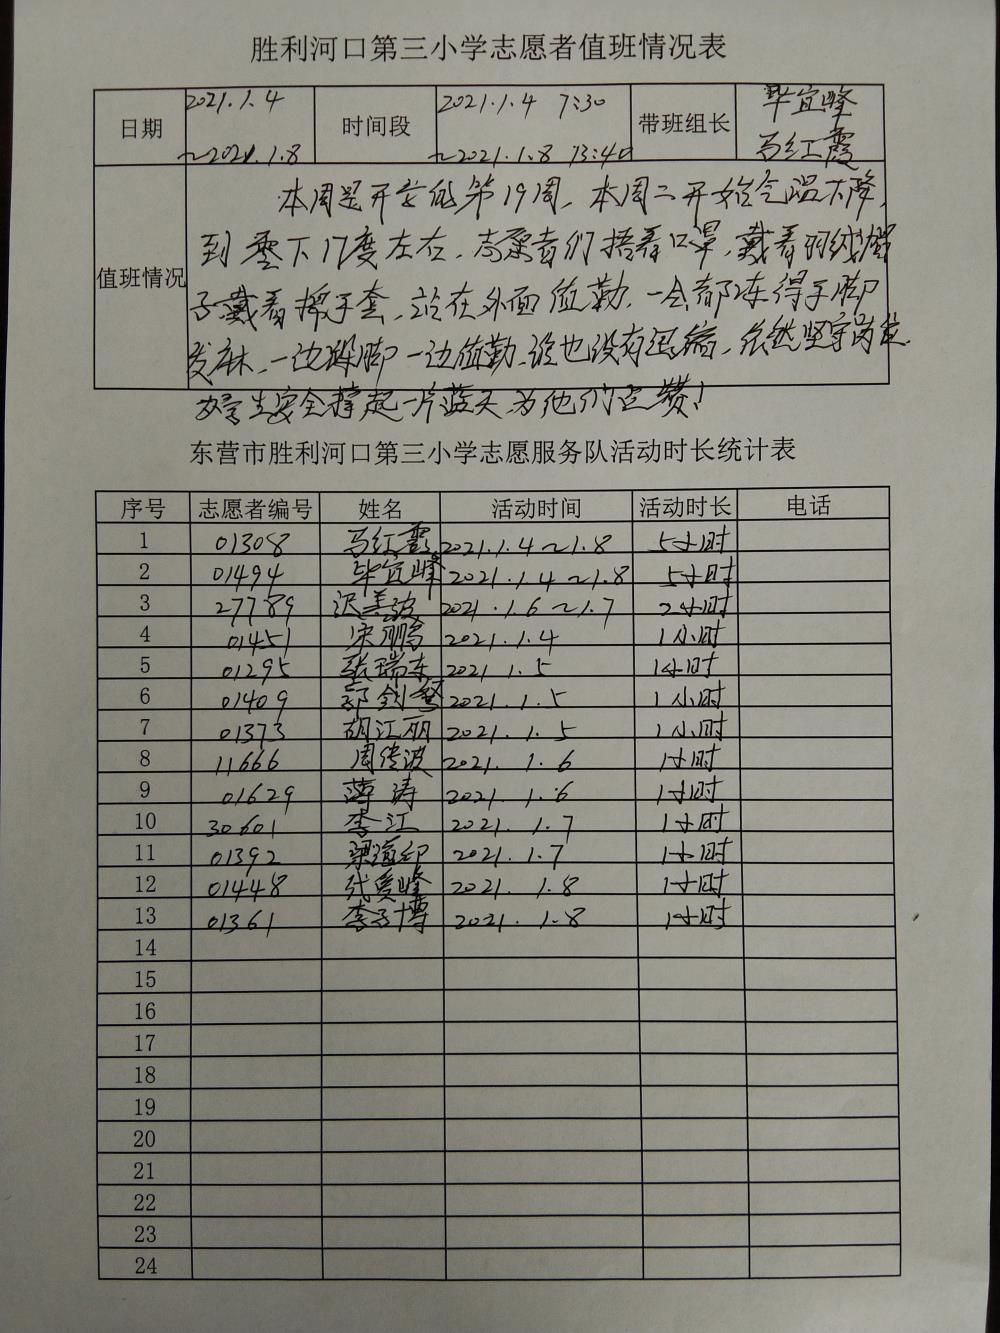 胜利河口第三小学志愿者值班情况表
日期 2021.1.4 ~2021.1.8 时间段 2021.1.4 7:30 ~2021.1.8 13:40 带班组长 毕宜峰 马红霞
值班情况
本周是开学的第19周，本周二开始气温下降，
到零下17度左右，志愿者们捂着口罩，戴着羽绒帽
子戴着手套，站在外面值勤，一会都冻得手脚
发麻，一边跺脚一边值勤，谁也没有退缩，依然坚守岗位
为学生安全撑起一片蓝天为他们点赞！
东营市胜利河口第三小学志愿服务队活动时长统计表
序号 志愿者编号 姓名 活动时间 活动时长 电话
1 01308 马红霞 2021.1.4~1.8 5小时
2 01494 毕宜峰 2021.1.4~1.8 5小时
3 27789 2021.1.6~1.7 2小时
4 01451 宋鹏 2021.1.4 1小时
5 01295 张瑞东 2021.1.5 1小时
6 01409 2021.1.5 1小时
7 01373 胡江丽 2021.1.5 1小时
8 11666 周传波 2021.1.6 1小时
9 01629 薄涛 2021.1.6 1小时
10 30601 李江 2021.1.7 1小时
11 01392 梁海印 2021.1.7 1小时
12 01448 2021.1.8 1小时
13 01361 李子博 2021.1.8 1小时
14
15
16
17
18
19
20
21
22
23
24